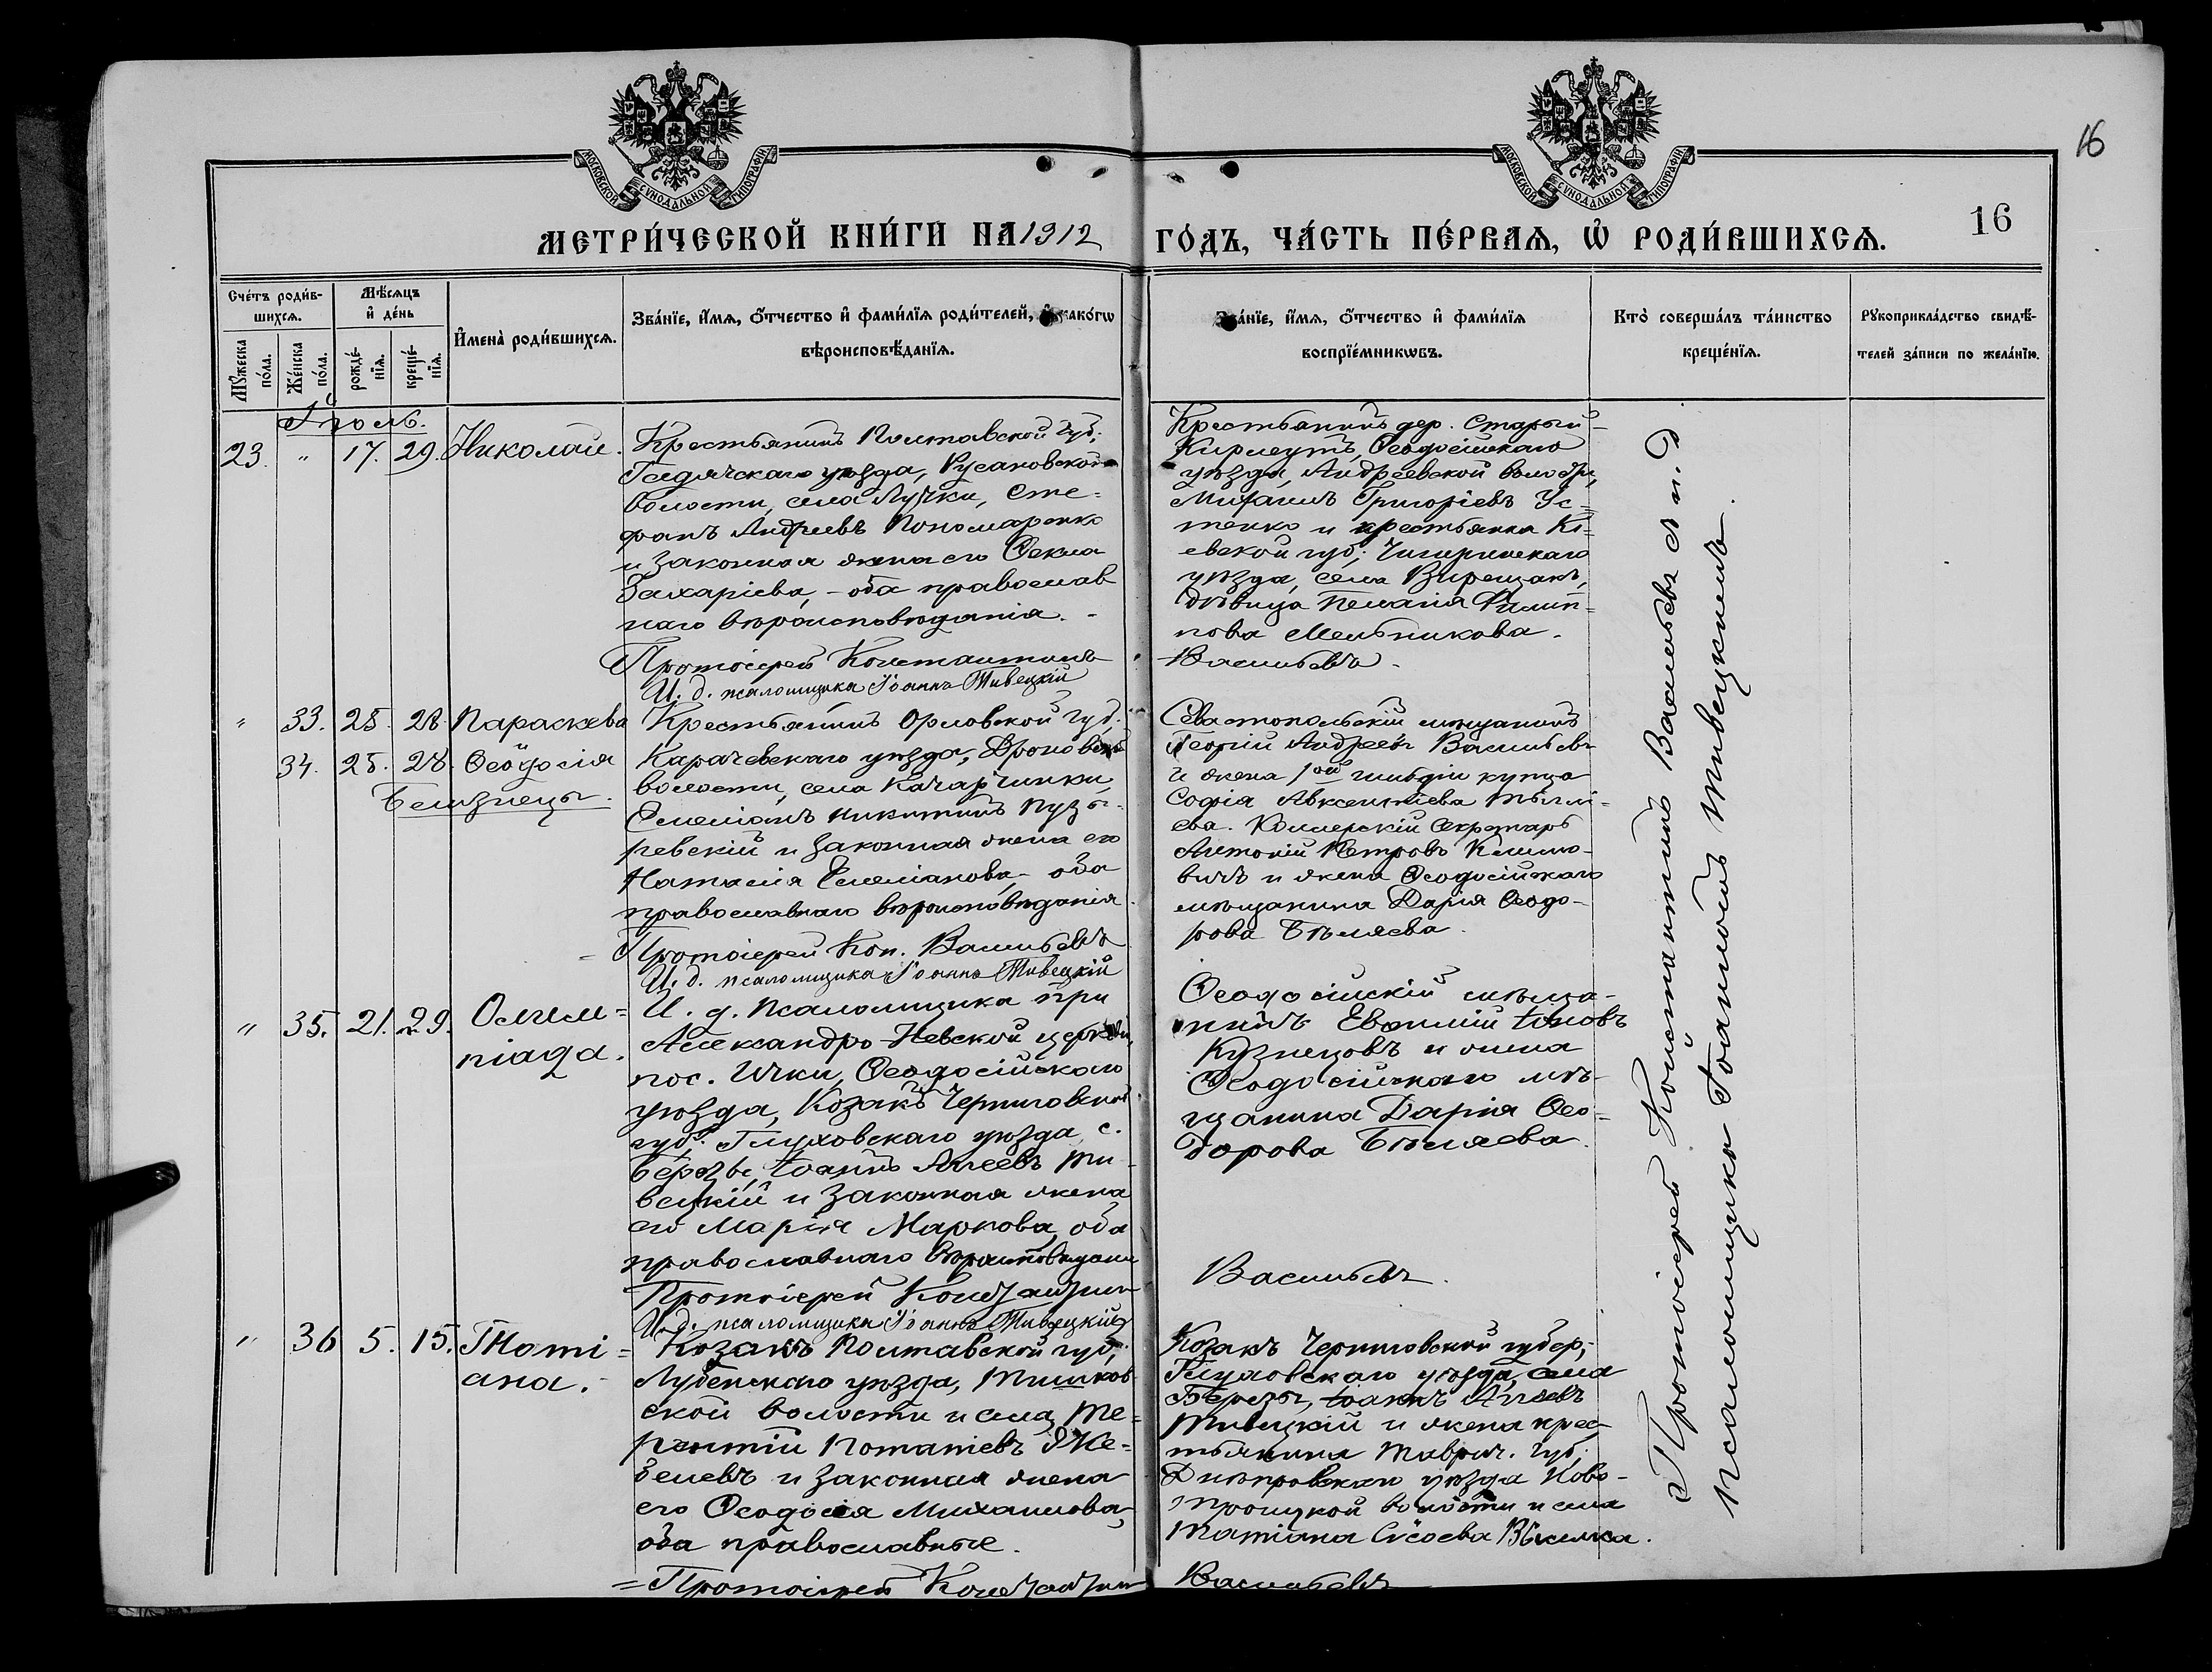 16
МОСКОВСКОЙ СУНОДАЛЬНОЙ ТИПОГРАФІИ
МОСКОВСКОЙ СУНОДАЛЬНОЙ ТИПОГРАФІИ
16
МЕТРИ́ЧЕСКОЙ КНИ́ГИ НА 1912 ГО́ДЪ, ЧА́СТЬ ПЕ́РВАѦ, Ѽ РОДИ́ВШИХСѦ.
Сче́тъ роди́в-
шихсѧ.
Мꙋжеска
по́ла.
Же́нска
по́ла.
Мѣ́сѧцъ
и҆ де́нь
рожде́-
нїѧ.
креще́-
нїѧ.
И҆мена̀ роди́вшихсѧ.
Зва́нїе, и҆́мѧ, о҆́тчество и҆ фами́лїѧ роди́телей, и҆ како́гѡ
вѣроисповѣ́данїѧ.
Зва́нїе, и҆́мѧ, о҆́тчество и҆ фами́лїѧ
воспрїе́мникѡвъ.
Кто̀ соверша́лъ та́инство
креще́нїѧ.
Рꙋкоприкла́дство свидѣ́-
телей за́писи по жела́нїю.
Іюль.
23. " 17. 29. Николай.
Крестьянинъ Полтавской губ.,
Гадячскаго уѣзда, Русановской
волости, села Лучки, Сте-
фанъ Андреевъ Пономаренко
и законная жена его Ѳекла
Захаріева, - оба православ
наго вѣроисповѣданія. -
Протоіерей Константинъ
И. д. псаломщика Іоаннъ Тивецкій
Крестьянинъ дер. Старый-
Кирлеутъ, Ѳеодосійскаго
уѣзда, Андреевской волости,
Михаилъ Григоріевъ Ус-
тенко и крестьянка Кі-
евской губ., Чигиринскаго
уѣзда, села
дѣвица Пелагія Филип-
пова Мельникова.
Васильевъ.
" 33. 25. 28. Параскева
34. 25. 28. Ѳеодосія
Близнецы.
Крестьянинъ Орловской губ.
Карачевскаго уѣзда, Дроновской
волости, села
Емеліанъ Никитинъ Пузы-
ревскій и законная жена его
Наталія Емеліанова, - оба
православнаго вѣроисповѣданія.
Протоіерей Кон. Васильевъ
И. д. псаломщика Іоаннъ Тивецкій
Севастопольскій мѣщанинъ
Георгій Андреевъ Васильевъ
и жена 1ой гильдіи купца
Софія Авксентіева
ева. Коллежскій Секретарь
Антоній Петровъ Климо-
вичъ и жена Ѳеодосійскаго
мѣщанина Дарія Ѳеодо-
рова Бѣляева.
" 35. 21. 29. Олим-
піада.
И. д. Псаломщика при
Александро-Невской церкви,
пос. Ички, Ѳеодосійскаго
уѣзда, Козакъ Черниговской
губ. Глуховскаго уѣзда с.
Березы, Іоаннъ Агѣевъ Ти-
вецкій и законная жена
его Марія Маркова, оба
православнаго вѣроисповѣданія
Протоіерей Константинъ
И. д. псаломщика Іоаннъ Тивецкій
Ѳеодосійскій мѣща-
нинъ Евѳимій Іоновъ
Кузнецовъ и жена
Ѳеодосійскаго мѣ-
щанина Дарія Ѳео-
дорова Бѣляева.
Васильевъ.
" 36 5. 15. Таті-
ана.
Козакъ Полтавской губ.,
Лубенскаго уѣзда, Тишков
ской волости и села, Те-
рентій Потапіевъ Же-
белевъ и законная жена
его Ѳеодосія Михаилова,
оба православные.
Протоіерей Константинъ
Козакъ Черниговской губер.,
Глуховскаго уѣзда, села
Березы, Іоаннъ Агѣевъ
Тивецкій и жена крес-
тьянина Таврич. губ.
Днѣпровскаго уѣзда Ново-
троицкой волости и села
Татіана Сисоева
Васильевъ
Протоіерей Константинъ Васильевъ и и. д.
псаломщика Іоанномъ Тивецкимъ.